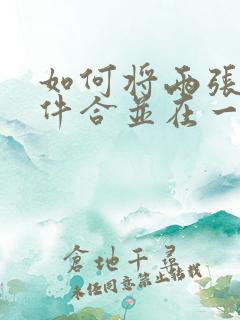 如何將兩張
件合並在一
倉地千尋
未经同意禁止转载